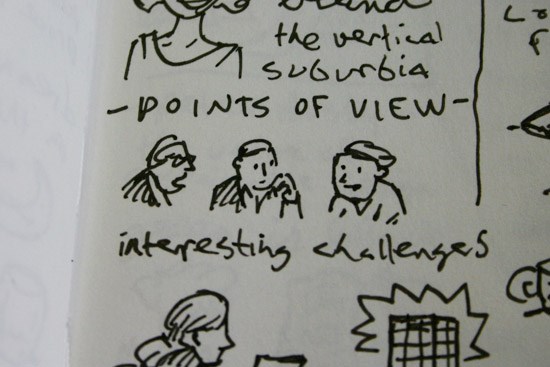 the vertical
suburbia
-POINTS OF VIEW-
interesting challenges